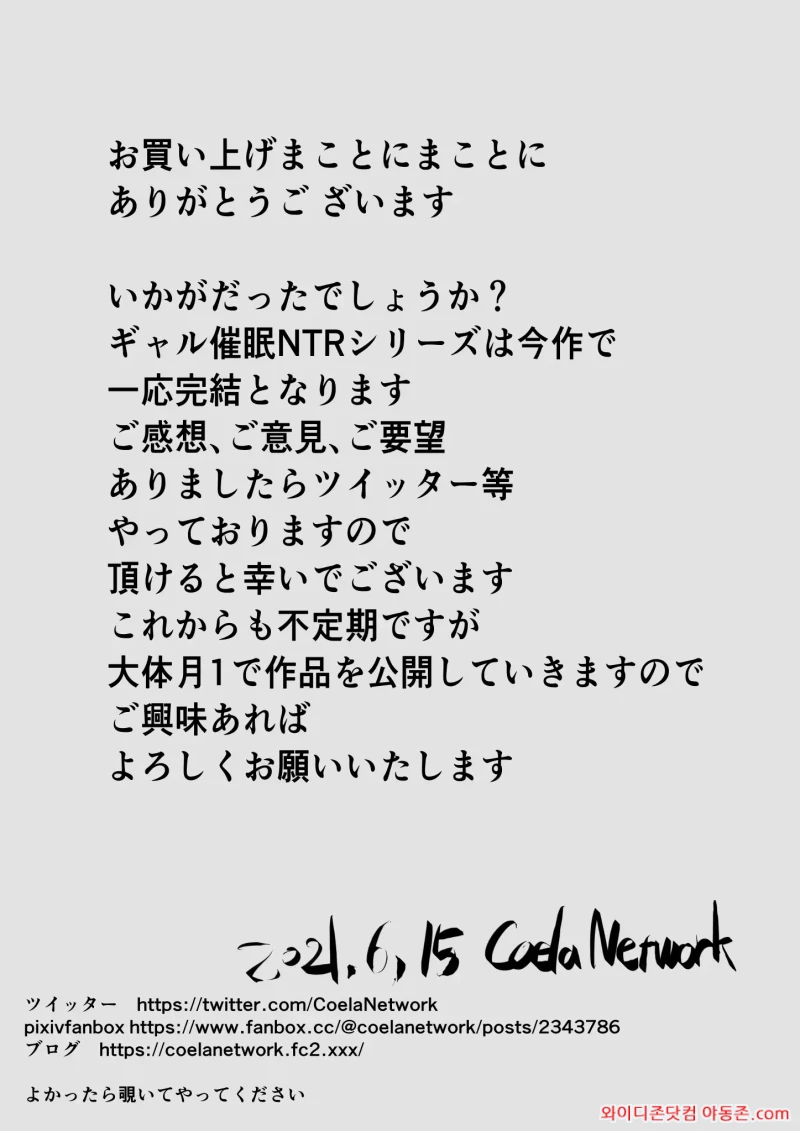 お買い上げまことにまことに
ありがとうご ざいます
いかがだったでしょうか？
ギャル催眠NTRシリーズは今作で
一応完結となります
ご感想、ご意見、ご要望
ありましたらツイッター等
やっておりますので
頂けると幸いでございます
これからも不定期ですが
大体月1で作品を公開していきますので
ご興味あれば
よろしくお願いいたします
2021.6,15 Coela Network
ツイッター　https://twitter.com/CoelaNetwork
pixivfanbox https://www.fanbox.cc/@coelanetwork/posts/2343786
ブログ　https://coelanetwork.fc2.xxx/
よかったら覗いてやってください
와이디존닷컴 야동존.com